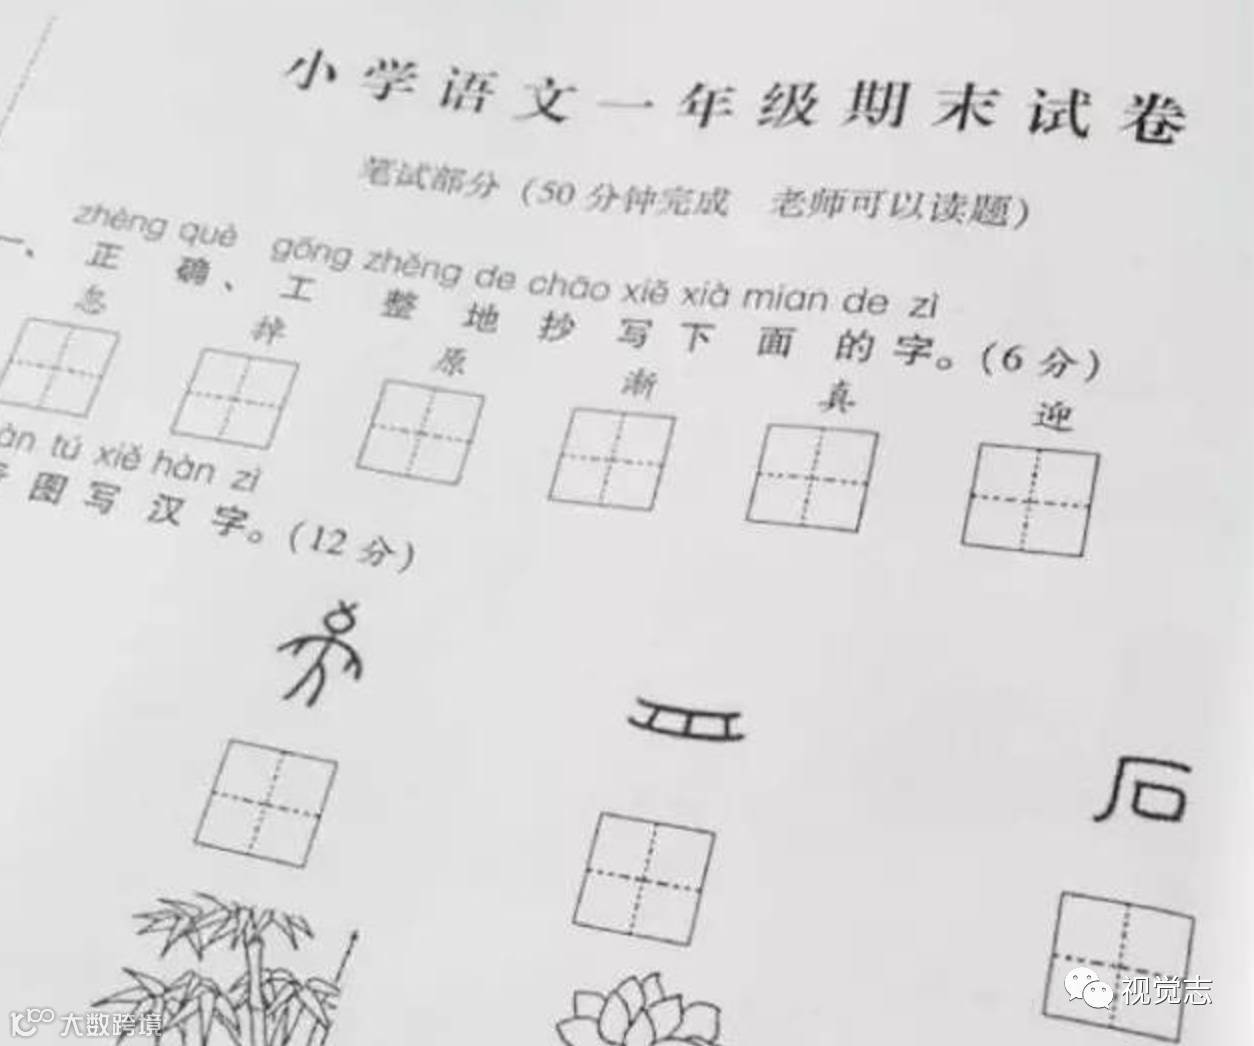 小学语文一年级期末试卷
笔试部分（50分钟完成 老师可以读题）
zhèng què gōng zhěng de chāo xiě xià mian de zì
一、正确、工整地抄写下面的字。（6分）
忽 掉 原 渐 真 迎
àn tú xiě hàn zì
图写汉字。（12分）
石
视觉志
大数跨境